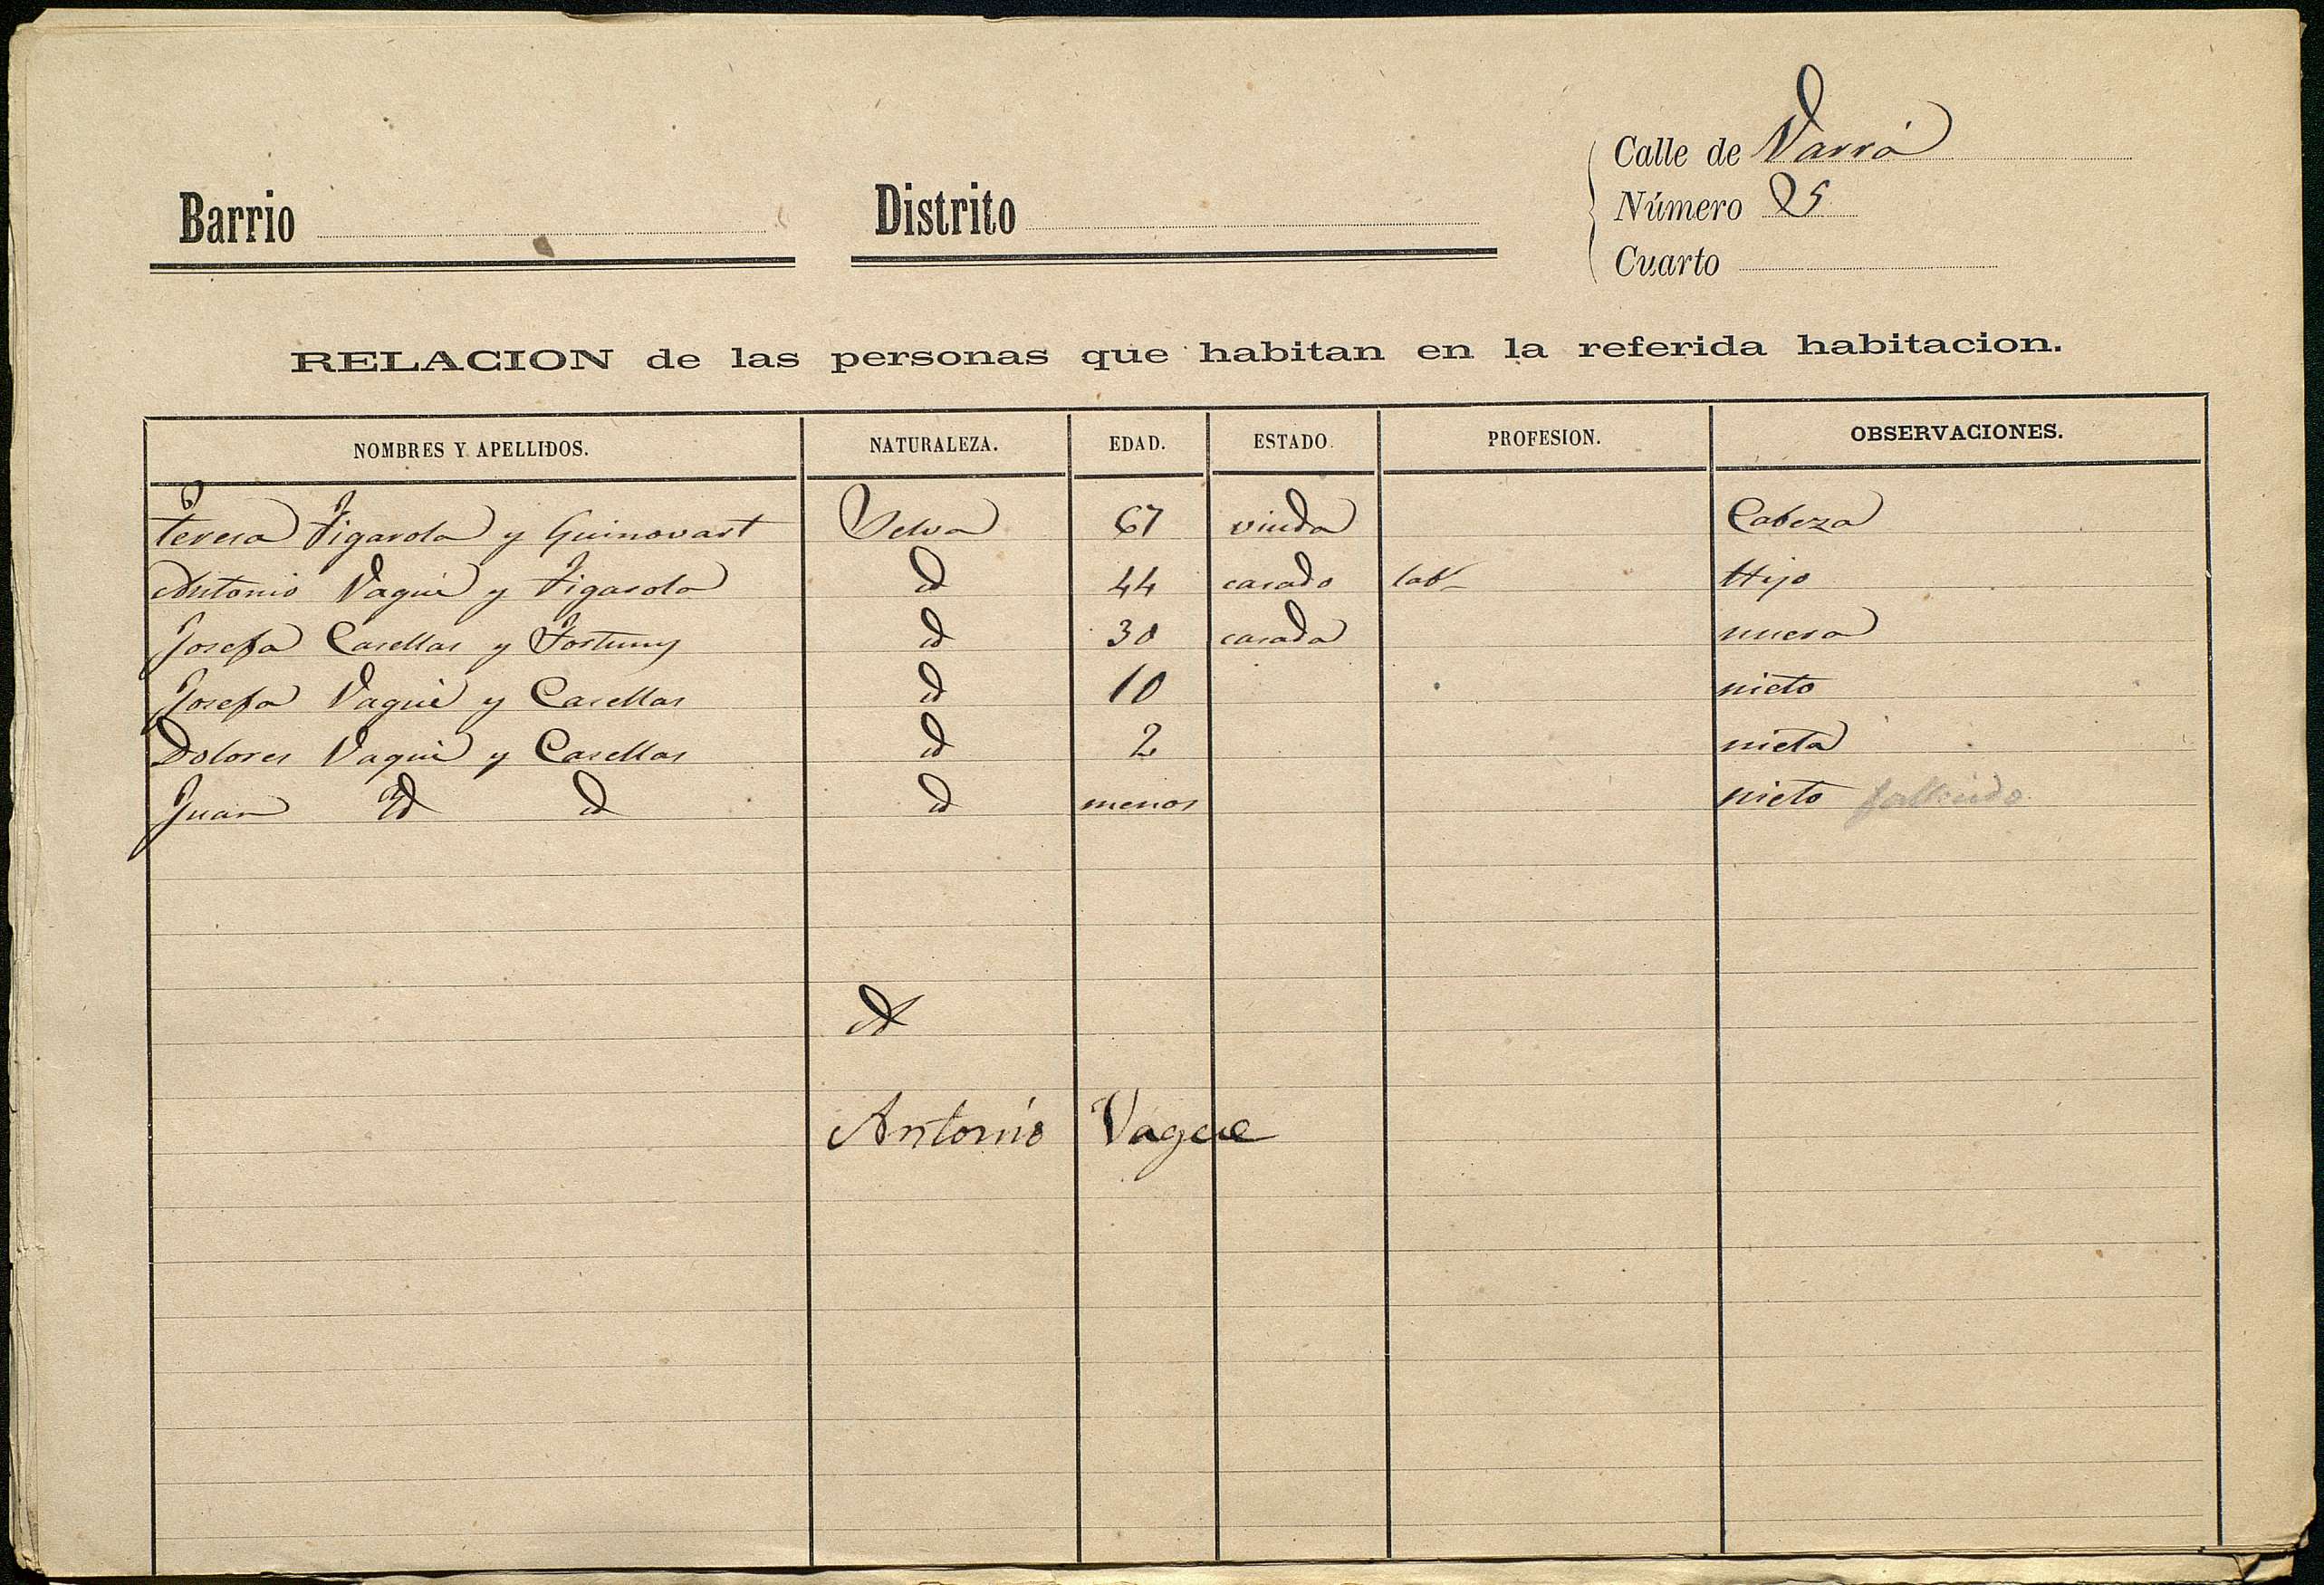 Calle de Varrá
Barrio Distrito Número 25
Cuarto
RELACION de las personas que habitan en la referida habitacion.
NOMBRES Y APELLIDOS. NATURALEZA. EDAD. ESTADO. PROFESION. OBSERVACIONES.
Teresa Figarola y Guinovart Selva 67 viuda Cabeza
Antonio Vagué y Figarola id 44 casado labr Hijo
Josefa Casellas y Fortuny id 30 casada nuera
Josefa Vagué y Casellas id 10 nieto
Dolores Vagué y Casellas id 2 nieta
Juan Id id id menos nieto fallecido
Antonio Vague